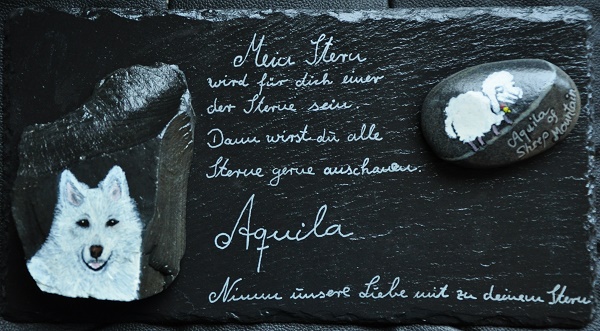 Mein Stern
wird für dich einer
der Sterne sein.
Dann wirst du alle
Sterne gerne anschauen.
Aquila
Nimm unsere Liebe mit zu deinem Stern
Aquila
of
Sheep Mountain